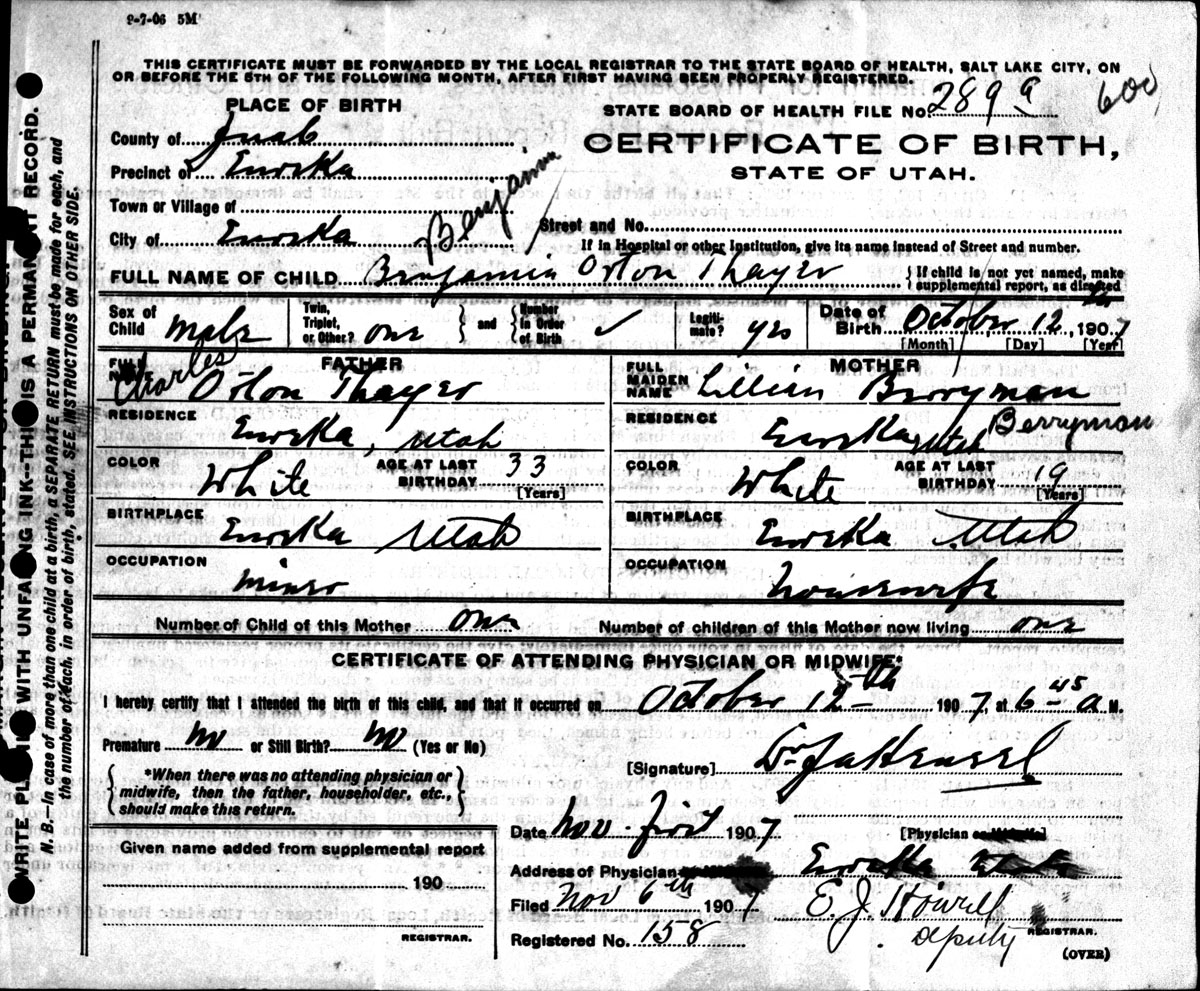 9-7-06 5M
THIS CERTIFICATE MUST BE FORWARDED BY THE LOCAL REGISTRAR TO THE STATE BOARD OF HEALTH, SALT LAKE CITY, ON
OR BEFORE THE 5TH OF THE FOLLOWING MONTH, AFTER FIRST HAVING BEEN PROPERLY REGISTERED.
PLACE OF BIRTH
STATE BOARD OF HEALTH FILE No. 289 a 600
County of Juab
CERTIFICATE OF BIRTH,
Precinct of Eureka
STATE OF UTAH.
Town or Village of
Benjamin
Street and No.
City of Eureka
If in Hospital or other Institution, give its name instead of Street and number.
FULL NAME OF CHILD Benjamin Orton Thayer
{If child is not yet named, make
supplemental report, as directed
Sex of Child male
Twin, Triplet, or Other? one
{and} Number in Order of Birth ✓
Legiti-mate? yes
Date of Birth October 12th, 1907
[Month] [Day] [Year]
FATHER
FULL NAME Charles Orton Thayer
MOTHER
FULL MAIDEN NAME Lillian Berryman
Berryman
RESIDENCE Eureka, Utah
RESIDENCE Eureka Utah
COLOR White AGE AT LAST BIRTHDAY 33 [Years]
COLOR White AGE AT LAST BIRTHDAY 19 [Years]
BIRTHPLACE Eureka Utah
BIRTHPLACE Eureka Utah
OCCUPATION miner
OCCUPATION Housewife
Number of Child of this Mother one Number of children of this Mother now living one
CERTIFICATE OF ATTENDING PHYSICIAN OR MIDWIFE*
I hereby certify that I attended the birth of this child, and that it occurred on October 12th 1907 at 6 45 a. M.
Premature no or Still Birth? no (Yes or No)
[Signature] Dr
{*When there was no attending physician or
midwife, then the father, householder, etc.,
should make this return.}
Date Nov. first 1907 [Physician
Given name added from supplemental report
190
REGISTRAR.
Address of Physician Eureka Utah
Filed Nov 6th 1907 E. J. Howell
deputy REGISTRAR.
Registered No. 158
(OVER)
WRITE PLAINLY WITH UNFADING INK--THIS IS A PERMANENT RECORD.
N. B.—In case of more than one child at a birth, a SEPARATE RETURN must be made for each, and
the number of each, in order of birth, stated. SEE INSTRUCTIONS ON OTHER SIDE.